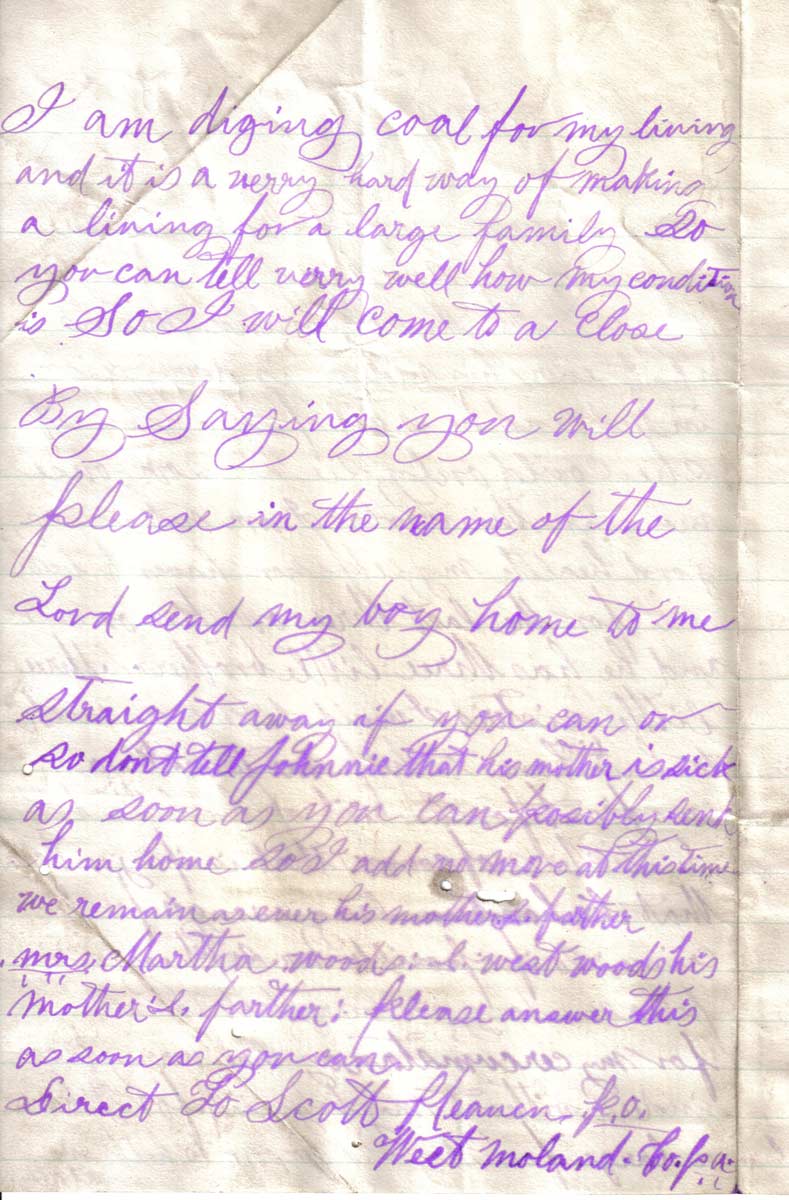 I am diging coal for my living
and it is a verry hard way of making
a living for a large family So
you can tell verry well how my condition
is So I will come to a close
By Saying you will
please in the name of the
Lord send my boy home to me
straight away if you can or
so dont tell Johnnie that his mother is sick
as soon as you can posibly send
him home So I add no more at this time
we remain as ever his mother & farther
mrs. Martha woods: & west woods his
mother & farther: please answer this
as soon as you can
Direct To Scott Heaven P.O.
West moland. Co. pa.